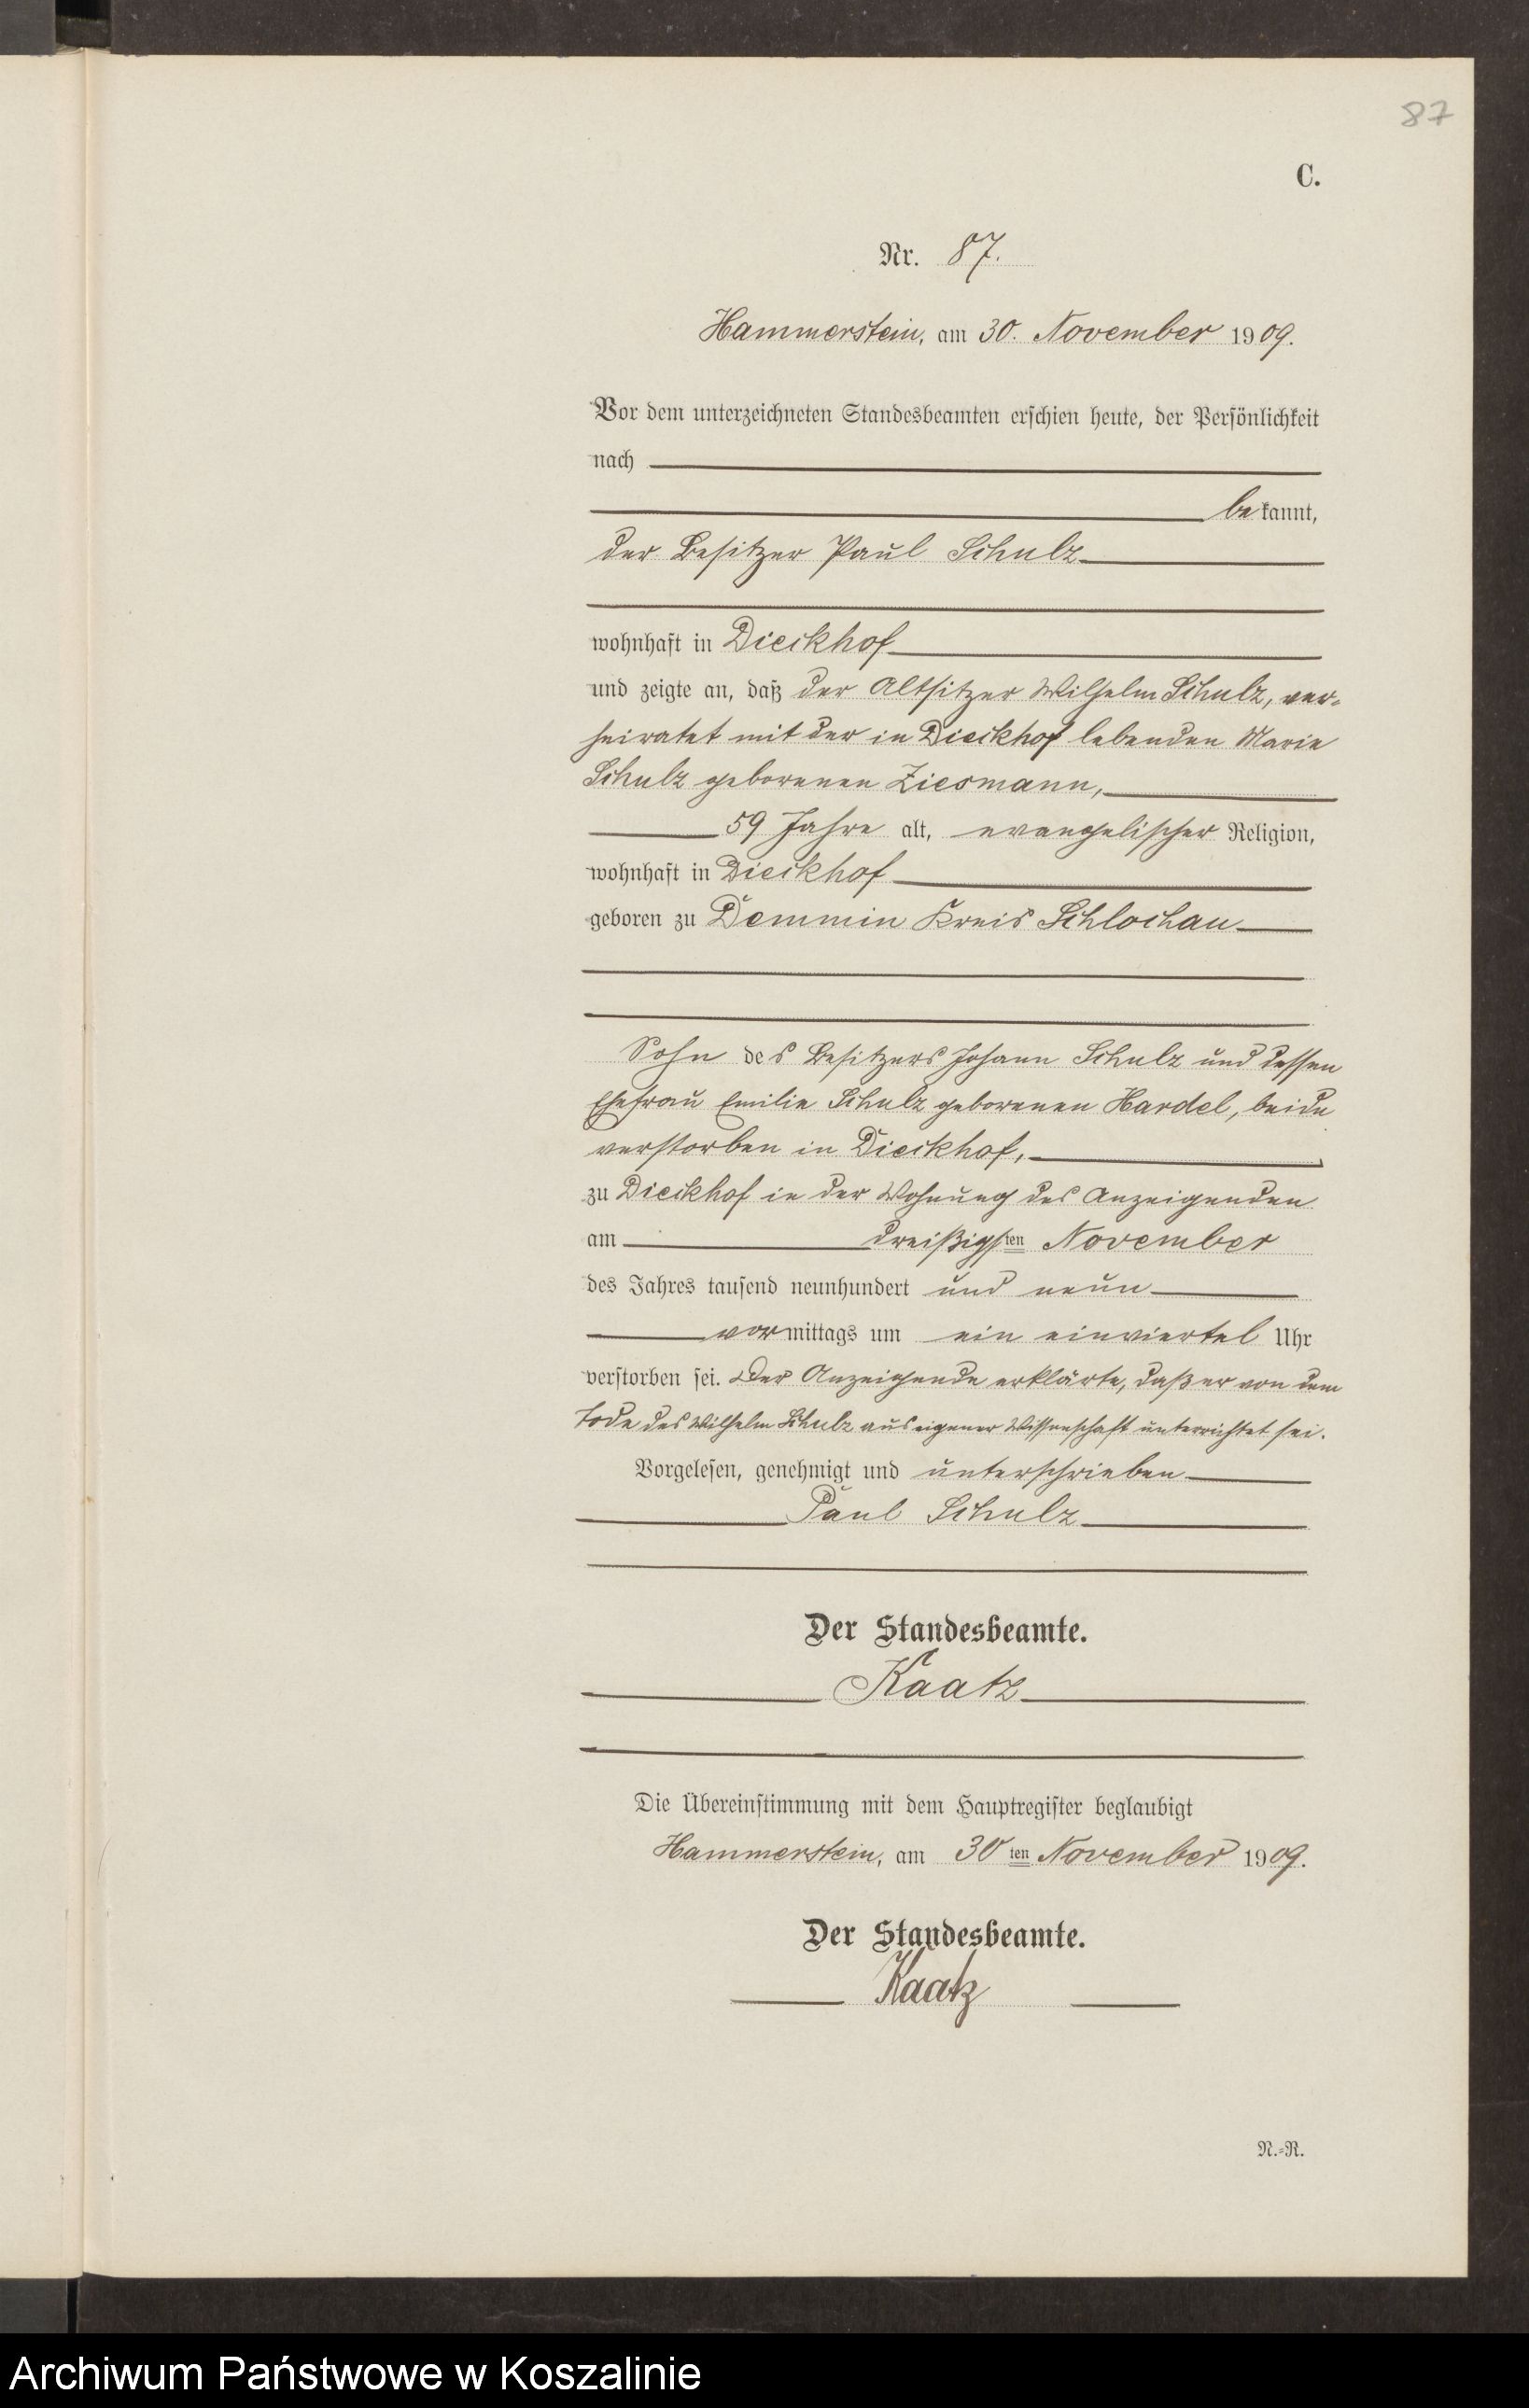 87
C.
Nr. 87.
Hammerstein, am 30. November 1909.
Vor dem unterzeichneten Standesbeamten erschien heute, der Persönlichkeit
nach
bekannt,
der Besitzer Paul Schulz
wohnhaft in Dieckhof
und zeigte an, daß der Altsitzer Wilhelm Schulz, ver-
heiratet mit der in Dieckhof lebenden Marie
Schulz geborenen Ziesmann,
59 Jahre alt, evangelischer Religion,
wohnhaft in Dieckhof
geboren zu Demmin Kreis Schlochau
Sohn des Besitzers Johann Schulz und dessen
Ehefrau Emilie Schulz geborenen Hardel, beide
verstorben in Dieckhof,
zu Dieckhof in der Wohnung des Anzeigenden
am dreißigsten November
des Jahres tausend neunhundert und neun
vormittags um ein einviertel Uhr
verstorben sei. Der Anzeigende erklärte, daß er von dem
Tode des Wilhelm Schulz aus eigener Wissenschaft unterrichtet sei.
Vorgelesen, genehmigt und unterschrieben
Paul Schulz
Der Standesbeamte.
Kaatz
Die Übereinstimmung mit dem Hauptregister beglaubigt
Hammerstein, am 30ten November 1909.
Der Standesbeamte.
Kaatz
N.-R.
Archiwum Państwowe w Koszalinie